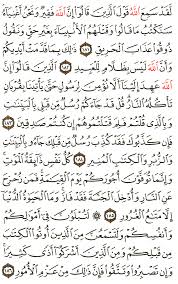 لَّقَدْ سَمِعَ اللَّهُ قَوْلَ الَّذِينَ قَالُوا إِنَّ اللَّهَ فَقِيرٌ وَنَحْنُ أَغْنِيَاءُ
سَنَكْتُبُ مَا قَالُوا وَقَتْلَهُمُ الْأَنبِيَاءَ بِغَيْرِ حَقٍّ وَنَقُولُ
ذُوقُوا عَذَابَ الْحَرِيقِ ١٨١ ذَٰلِكَ بِمَا قَدَّمَتْ أَيْدِيكُمْ
وَأَنَّ اللَّهَ لَيْسَ بِظَلَّامٍ لِّلْعَبِيدِ ١٨٢ الَّذِينَ قَالُوا إِنَّ
اللَّهَ عَهِدَ إِلَيْنَا أَلَّا نُؤْمِنَ لِرَسُولٍ حَتَّىٰ يَأْتِيَنَا بِقُرْبَانٍ
تَأْكُلُهُ النَّارُ قُلْ قَدْ جَاءَكُمْ رُسُلٌ مِّن قَبْلِي بِالْبَيِّنَٰتِ
وَبِالَّذِي قُلْتُمْ فَلِمَ قَتَلْتُمُوهُمْ إِن كُنتُمْ صَٰدِقِينَ ١٨٣
فَإِن كَذَّبُوكَ فَقَدْ كُذِّبَ رُسُلٌ مِّن قَبْلِكَ جَاءُو بِالْبَيِّنَٰتِ
وَالزُّبُرِ وَالْكِتَٰبِ الْمُنِيرِ ١٨٤ كُلُّ نَفْسٍ ذَائِقَةُ الْمَوْتِ
وَإِنَّمَا تُوَفَّوْنَ أُجُورَكُمْ يَوْمَ الْقِيَٰمَةِ فَمَن زُحْزِحَ
عَنِ النَّارِ وَأُدْخِلَ الْجَنَّةَ فَقَدْ فَازَ وَمَا الْحَيَوٰةُ الدُّنْيَا
إِلَّا مَتَٰعُ الْغُرُورِ ١٨٥ لَتُبْلَوُنَّ فِي أَمْوَٰلِكُمْ
وَأَنفُسِكُمْ وَلَتَسْمَعُنَّ مِنَ الَّذِينَ أُوتُوا الْكِتَٰبَ
مِن قَبْلِكُمْ وَمِنَ الَّذِينَ أَشْرَكُوا أَذًى كَثِيرًا
وَإِن تَصْبِرُوا وَتَتَّقُوا فَإِنَّ ذَٰلِكَ مِنْ عَزْمِ الْأُمُورِ ١٨٦